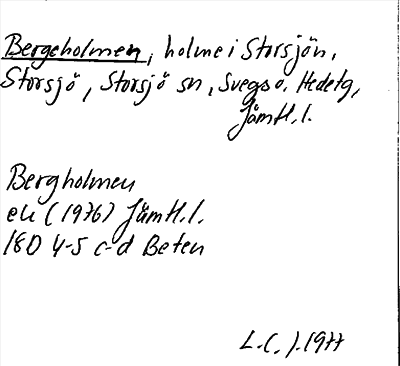 Bergeholmen, holme i Storsjön,
Storsjö, Storsjö sn, Svegs o. Hedetg,
Jämtl.l.
Bergholmen
ek (1976) Jämtl.l.
18D 4-5 c-d Beten
L.C.J. 1977